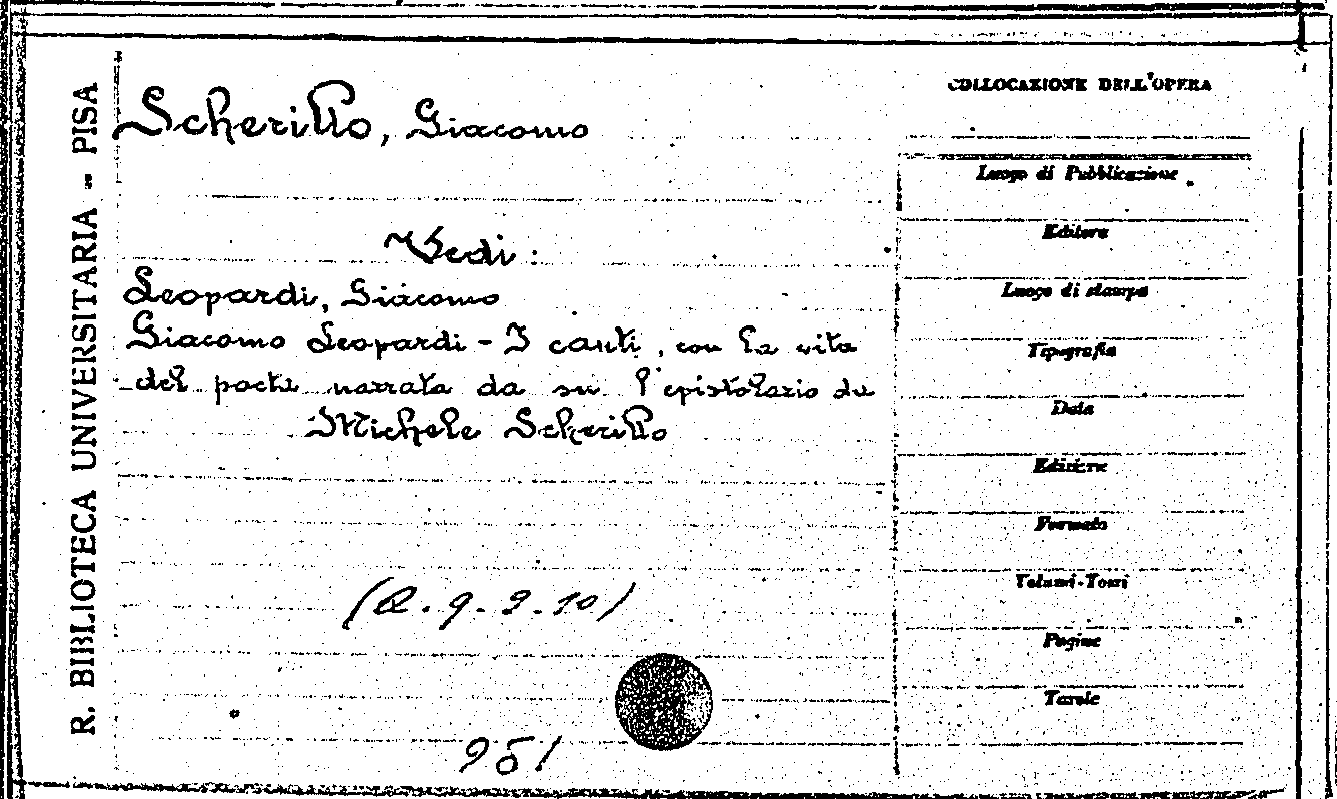 R. BIBLIOTECA UNIVERSITARIA - PISA
Scherillo, Giacomo
Vedi:
Leopardi, Giacomo
Giacomo Leopardi - I canti, con la vita
del poeta narrata da su l'epistolario da
Michele Scherillo
(Q. 9. 9. 10)
951
COLLOCAZIONE DELL'OPERA
Luogo di Pubblicazione
Editore
Luogo di stampa
Tipografia
Data
Edizione
Formato
Volumi-Tomi
Pagine
Tavole